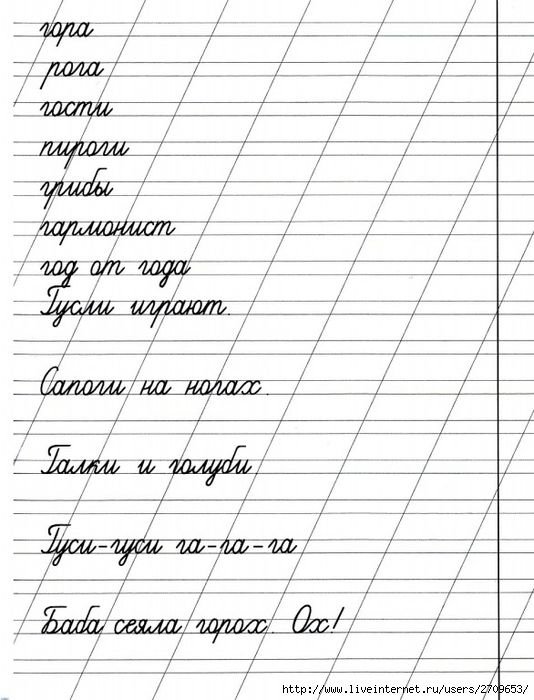 гора
рога
гости
пироги
грибы
гармонист
год от года
Гусли играют.
Сапоги на ногах.
Галки и голуби
Гуси-гуси га-га-га
Баба сеяла горох. Ох!
http://www.liveinternet.ru/users/2709653/